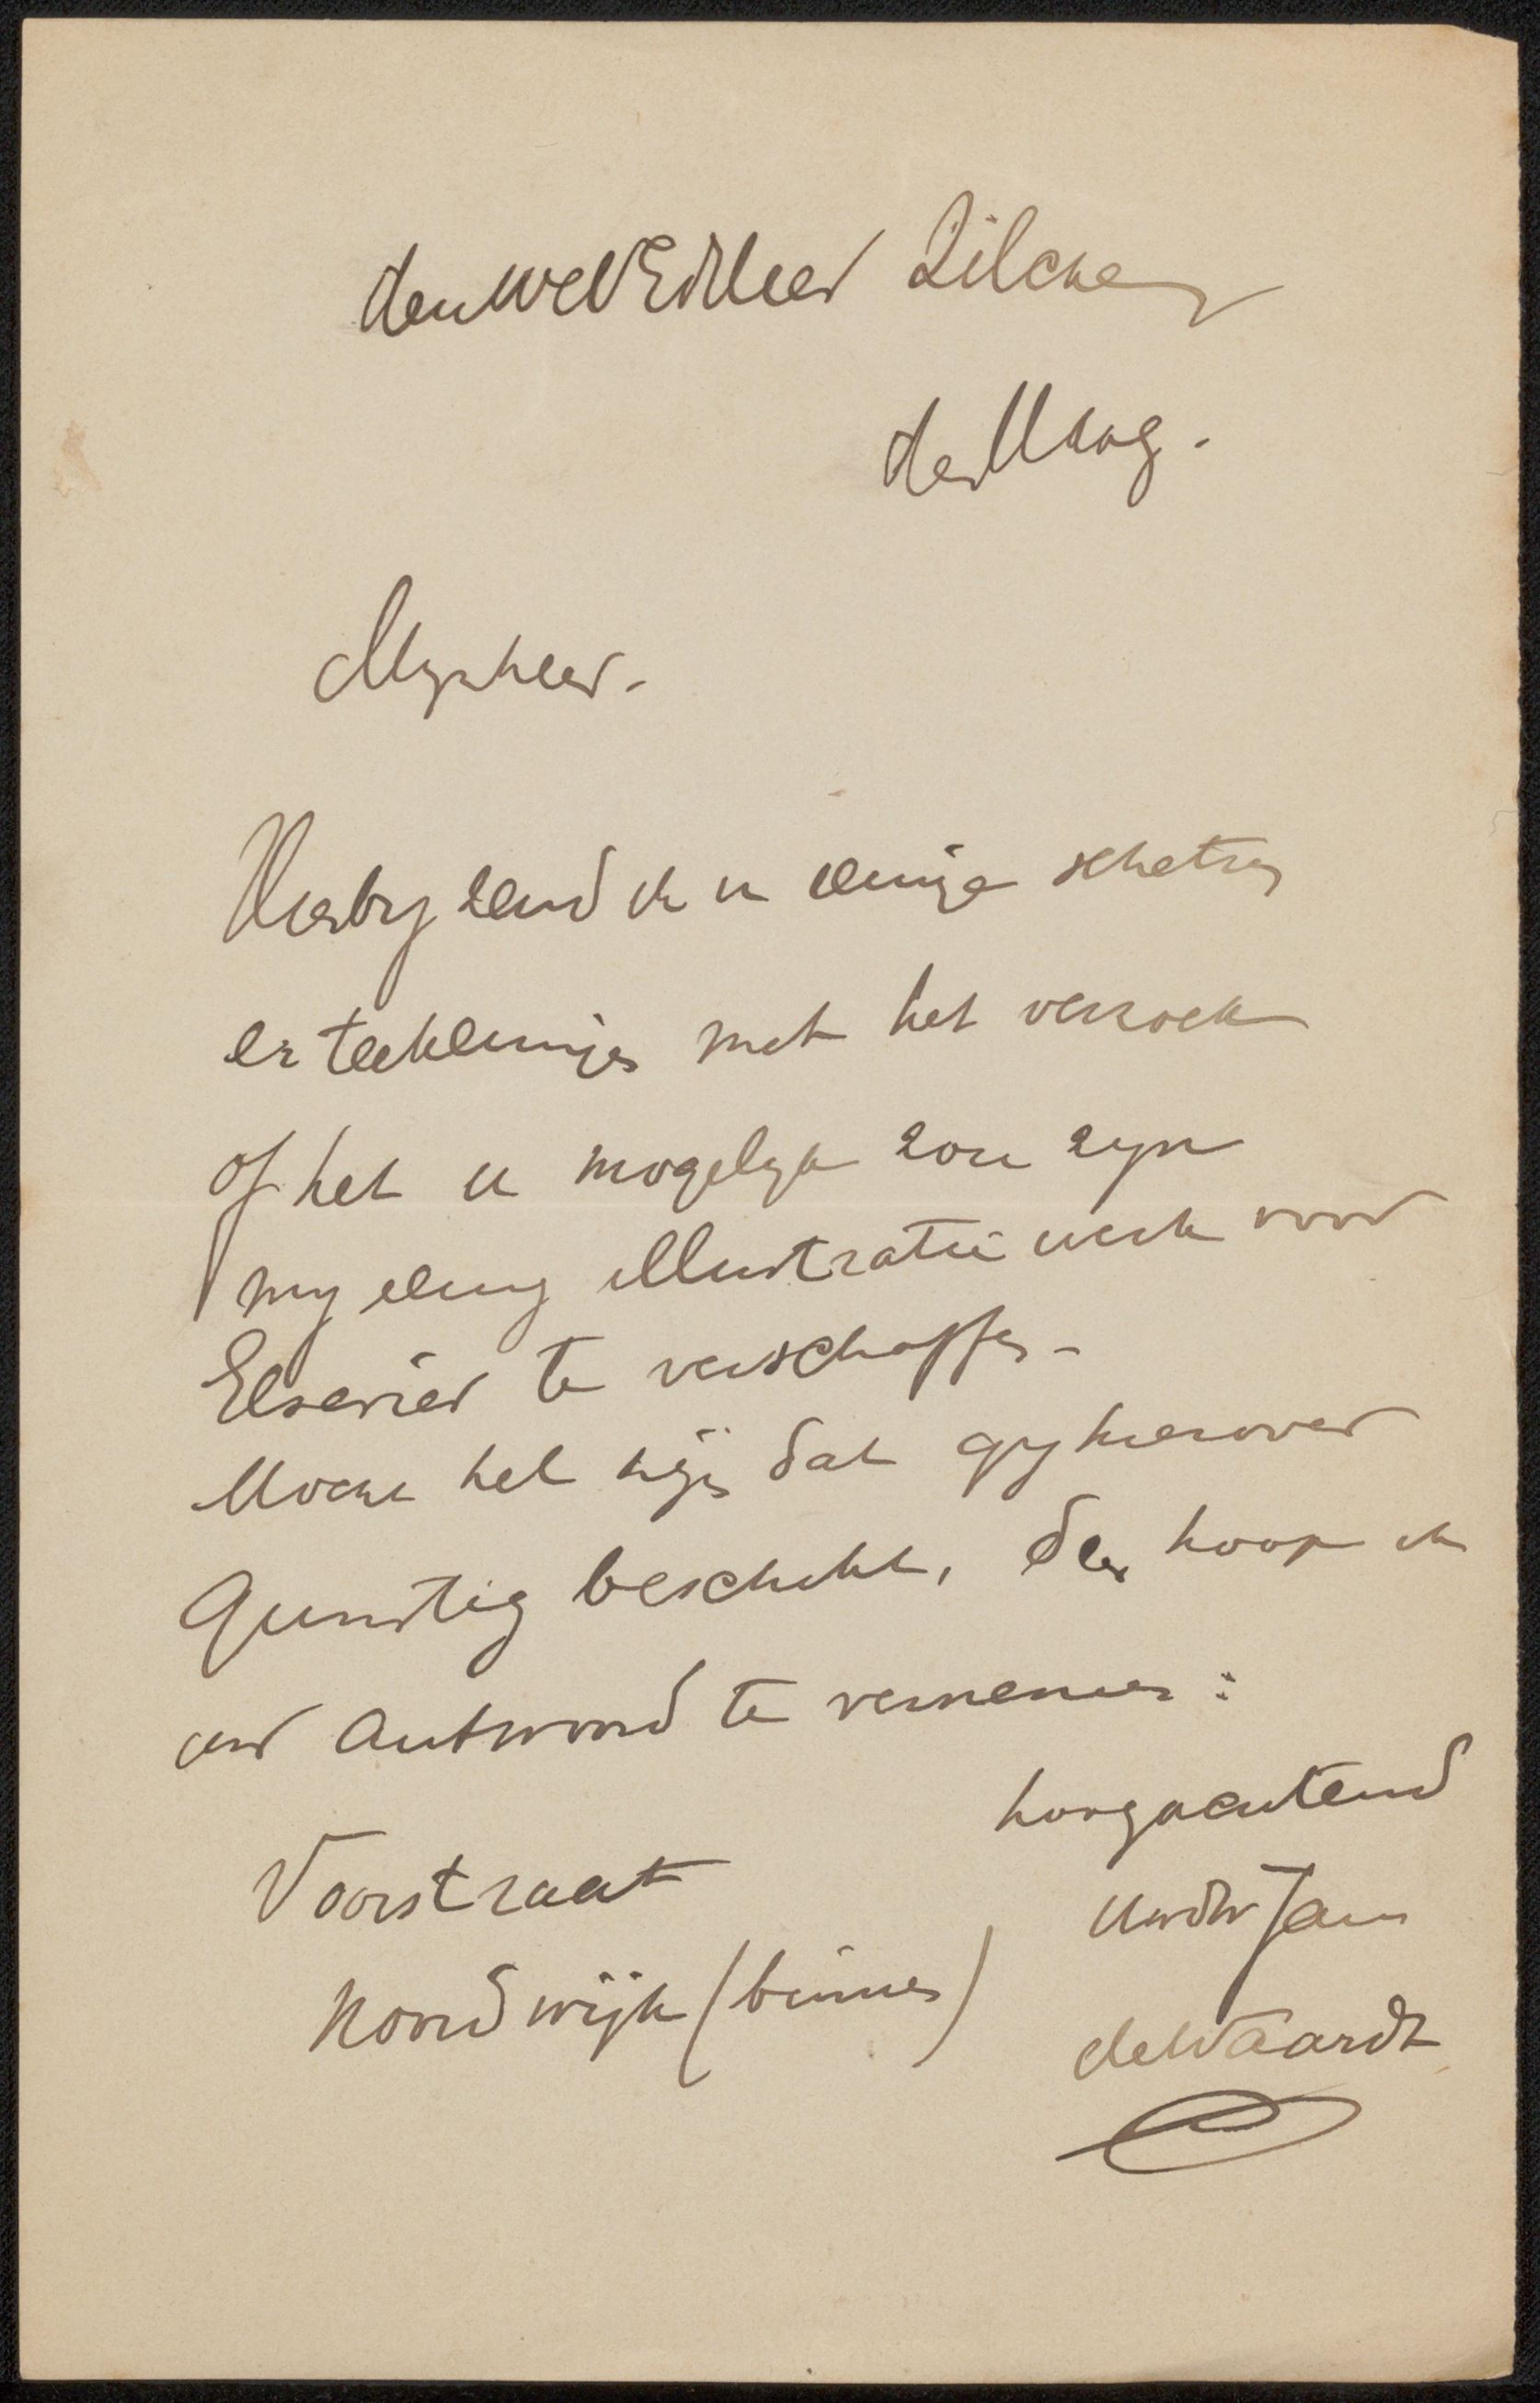 den WelEd Heer Zilcken
den Haag.
Mynheer.
Hierby zend ik u eenige schetsen
en teekeningen met het verzoek
of het u mogelyk zou zyn
my eenig illustratie werk voor
Elsevier te verschaffen -
Mocht het zijn dat gy hierover
Gunstig beschikt, dan hoop ik
uw Antwoord te vernemen:
hoogachtend
Uw dw Jan
de Waardt
Voorstraat
Noordwijk (binnen)